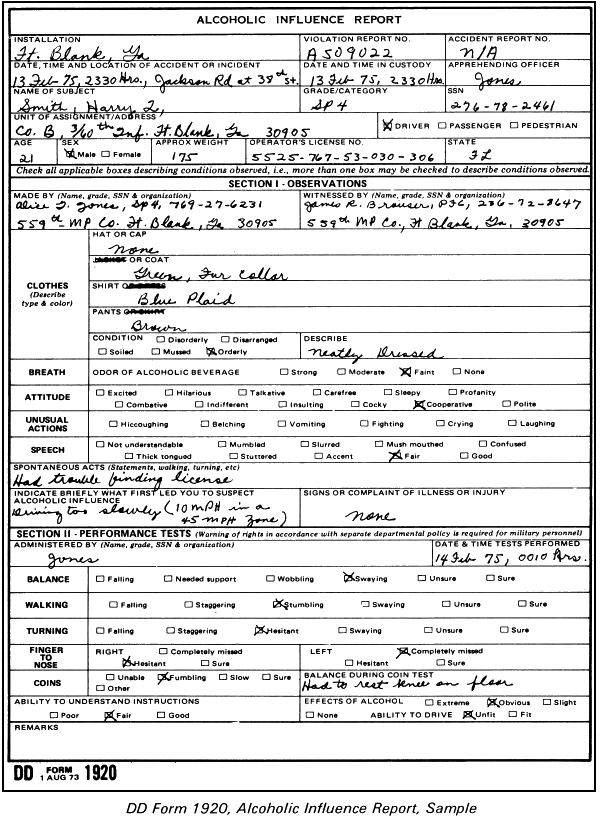 ALCOHOLIC INFLUENCE REPORT
INSTALLATION VIOLATION REPORT NO. ACCIDENT REPORT NO.
Ft. Blank, Ga A509022 N/A
DATE, TIME AND LOCATION OF ACCIDENT OR INCIDENT DATE AND TIME IN CUSTODY APPREHENDING OFFICER
13 Feb 75, 2330 Hrs, Jackson Rd at 38th St. 13 Feb 75, 2330 Hrs Jones
NAME OF SUBJECT GRADE/CATEGORY SSN
Smith, Harry Z, SP4 276-78-2461
UNIT OF ASSIGNMENT/ADDRESS
Co. B, 3/60th Inf. Ft. Blank, Ga 30905 DRIVER PASSENGER PEDESTRIAN
AGE SEX APPROX WEIGHT OPERATOR'S LICENSE NO. STATE
21 Male Female 175 5525-767-53-030-306 FL
Check all applicable boxes describing conditions observed, i.e., more than one box may be checked to describe conditions observed.
SECTION I - OBSERVATIONS
MADE BY (Name, grade, SSN & organization) WITNESSED BY (Name, grade, SSN & organization)
Alice J. Jones, SP4, 769-27-6231 James R. Brouser, PFC, 236-72-8647
559th MP Co. Ft. Blank, Ga 30905 559th MP Co., Ft Blank, Ga, 30905
CLOTHES
(Describe
type & color)
HAT OR CAP
None
OR COAT
Green, Fur Collar
SHIRT
Blue Plaid
PANTS
Brown
CONDITION Disorderly Disarranged DESCRIBE
Soiled Mussed Orderly Neatly Dressed
BREATH ODOR OF ALCOHOLIC BEVERAGE Strong Moderate Faint None
ATTITUDE Excited Hilarious Talkative Carefree Sleepy Profanity
Combative Indifferent Insulting Cocky Cooperative Polite
UNUSUAL
ACTIONS Hiccoughing Belching Vomiting Fighting Crying Laughing
SPEECH Not understandable Mumbled Slurred Mush mouthed Confused
Thick tongued Stuttered Accent Fair Good
SPONTANEOUS ACTS (Statements, walking, turning, etc)
Had trouble finding license
INDICATE BRIEFLY WHAT FIRST LED YOU TO SUSPECT
ALCOHOLIC INFLUENCE SIGNS OR COMPLAINT OF ILLNESS OR INJURY
Driving too slowly (10 MPH in a
45 MPH zone) None
SECTION II - PERFORMANCE TESTS (Warning of rights in accordance with separate departmental policy is required for military personnel)
ADMINISTERED BY (Name, grade, SSN & organization) DATE & TIME TESTS PERFORMED
Jones 14 Feb 75, 0010 Hrs.
BALANCE Falling Needed support Wobbling Swaying Unsure Sure
WALKING Falling Staggering Stumbling Swaying Unsure Sure
TURNING Falling Staggering Hesitant Swaying Unsure Sure
FINGER
TO
NOSE
RIGHT Completely missed LEFT Completely missed
Hesitant Sure Hesitant Sure
COINS Unable Fumbling Slow Sure BALANCE DURING COIN TEST
Other Had to rest knee on floor
ABILITY TO UNDERSTAND INSTRUCTIONS EFFECTS OF ALCOHOL Extreme Obvious Slight
Poor Fair Good None ABILITY TO DRIVE Unfit Fit
REMARKS
DD FORM 1 AUG 73 1920
DD Form 1920, Alcoholic Influence Report, Sample